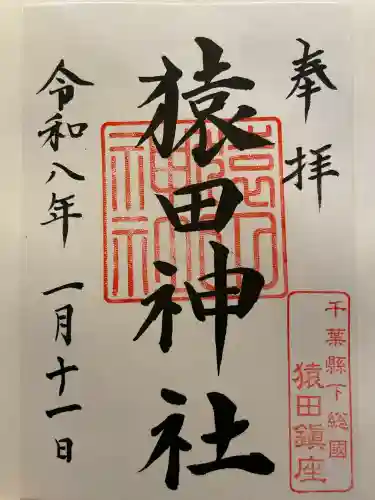 奉拝
千葉縣下総國
猿田鎭座
猿田神社
猿田神社
令和八年 一月十一日